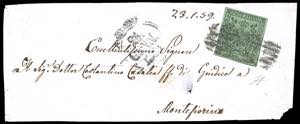 23.1.59.
Eccellentissimo Signore
Al Sigr Dottor Costantino Casalis ff di Giudice a
Montefiorino